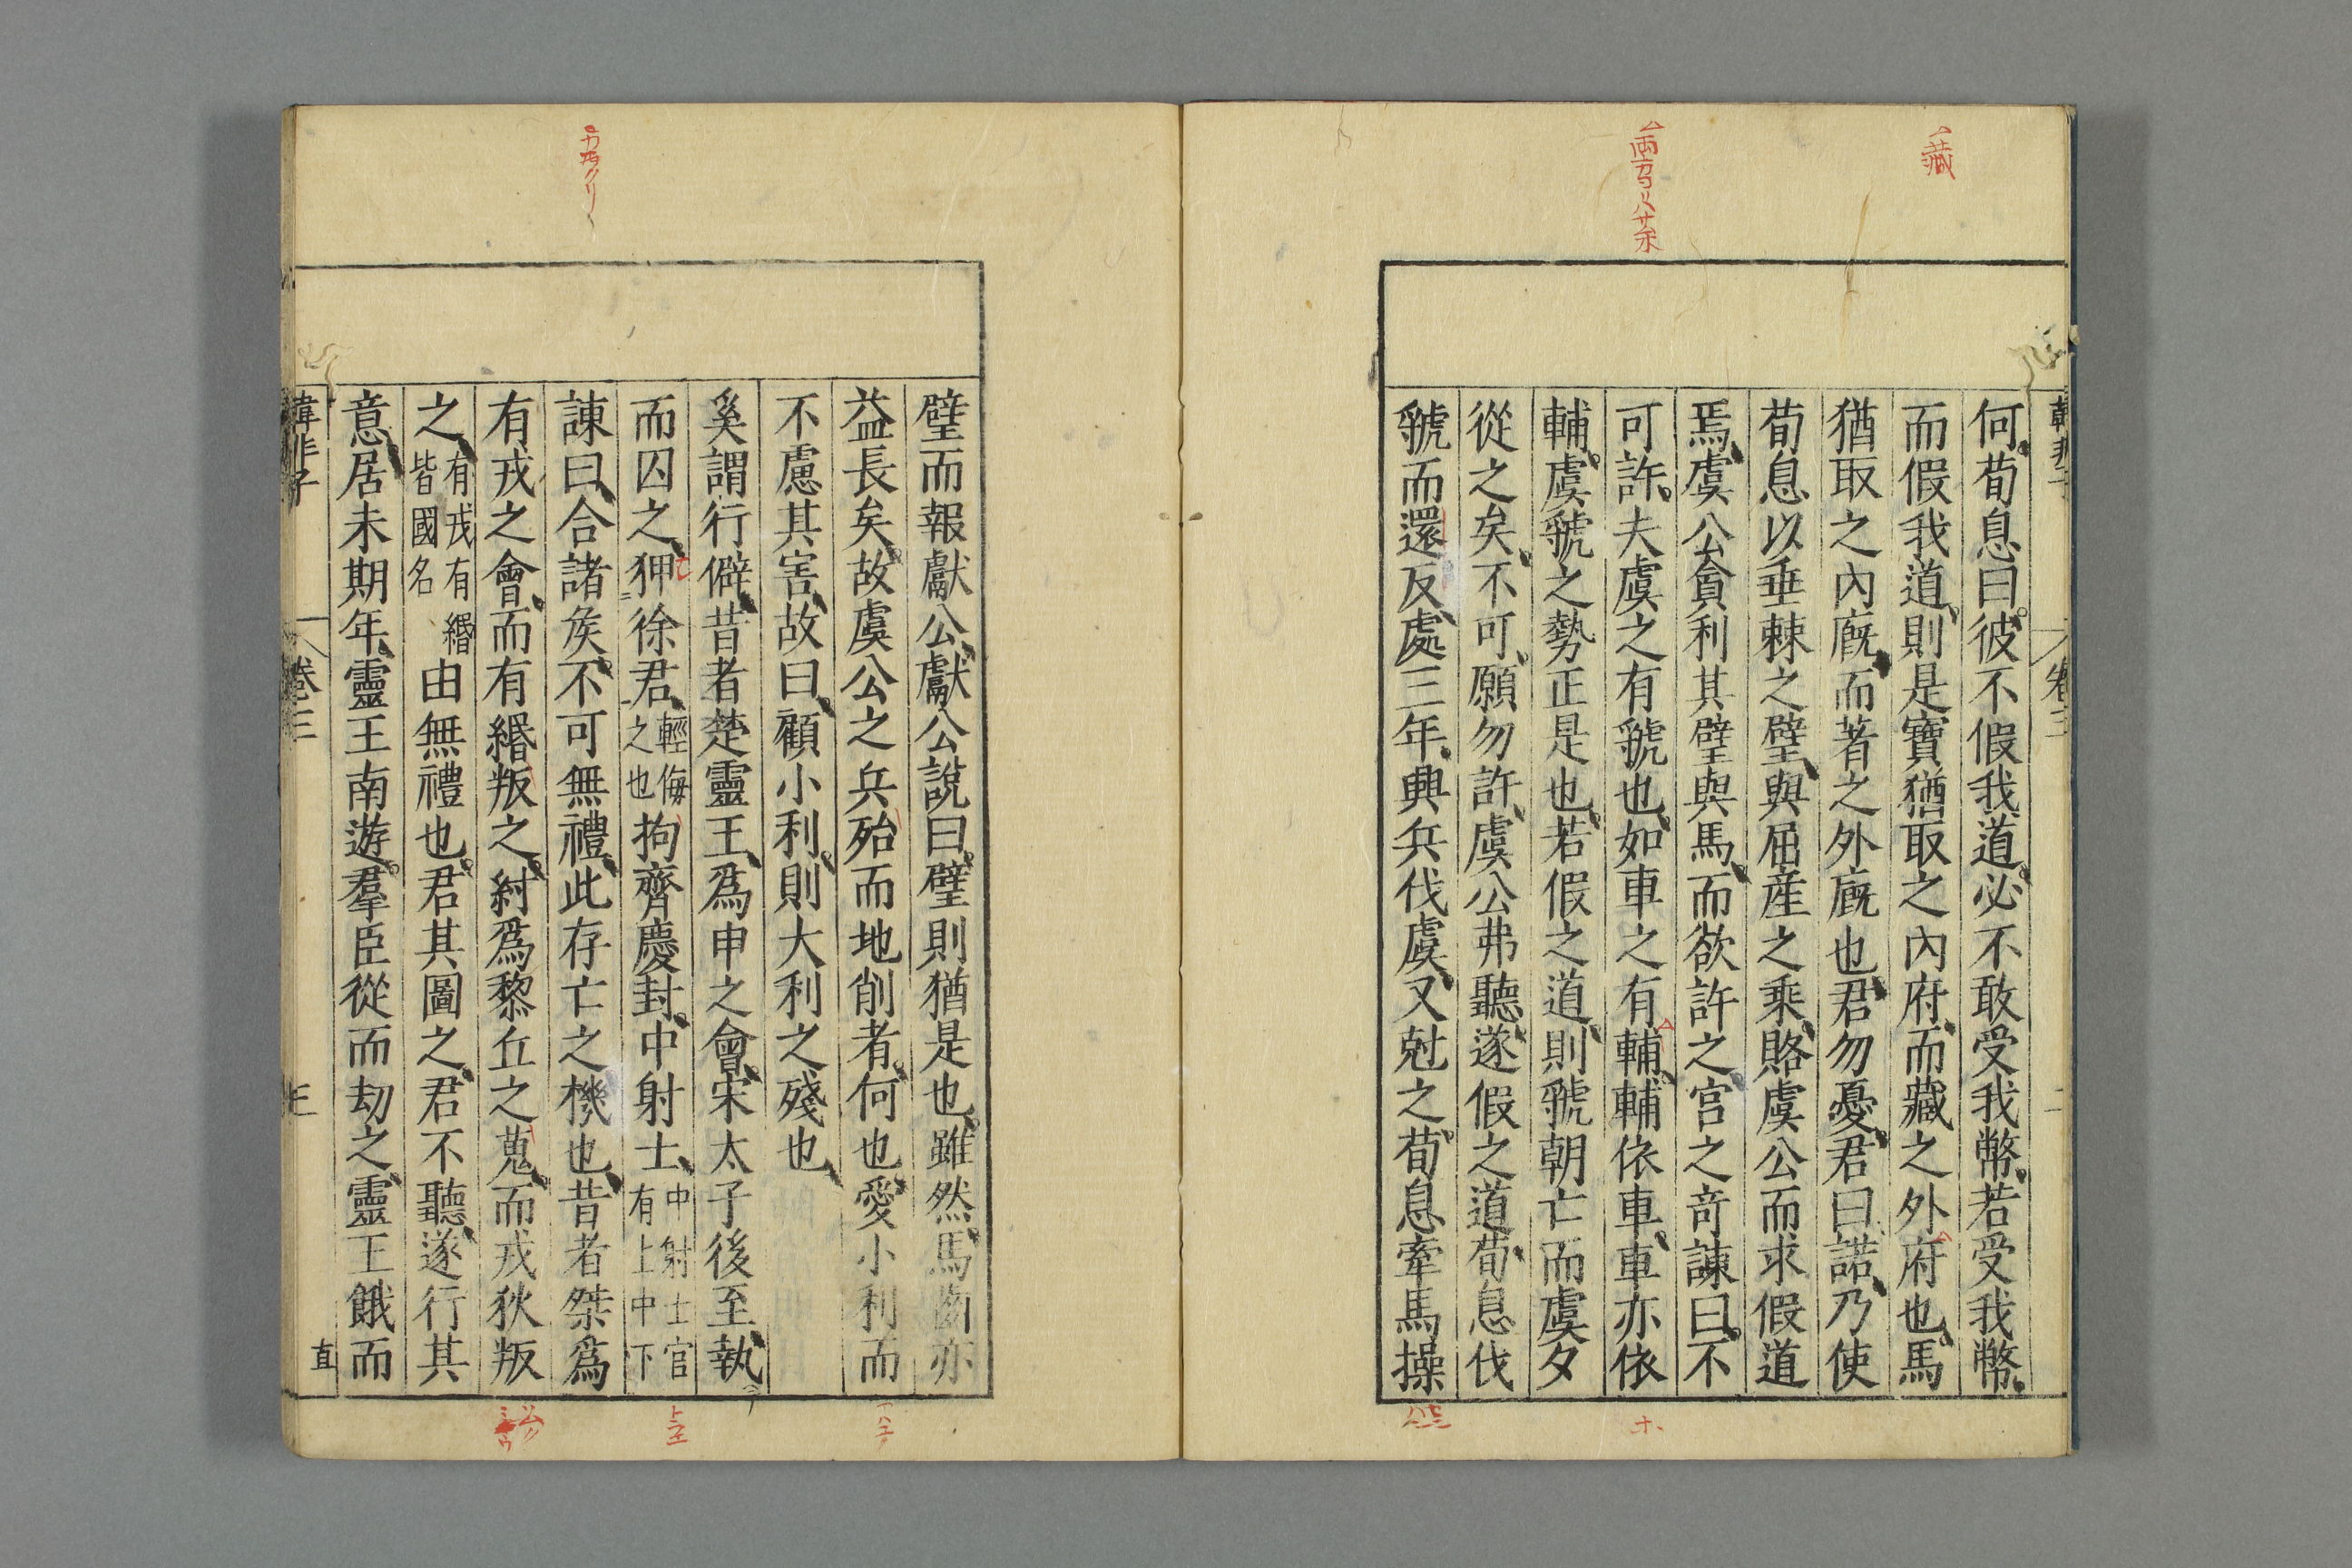 藏
兩
韓非子 卷三 二
何荀息曰彼不假我道必不敢受我幣若受我幣
而假我道則是寶猶取之內府而藏之外府也馬
猶取之內廐而著之外廐也君勿憂君曰諾乃使
荀息以垂棘之璧與屈產之乘賂虞公而求假道
焉虞公貪利其璧與馬而欲許之宮之奇諫曰不
可許夫虞之有虢也如車之有輔輔依車車亦依
輔虞虢之勢正是也若假之道則虢朝亡而虞夕
從之矣不可願勿許虞公弗聽遂假之道荀息伐
虢而還反處三年興兵伐虞又尅之荀息牽馬操
璧而報獻公獻公說曰璧則猶是也雖然馬齒亦
益長矣故虞公之兵殆而地削者何也愛小利而
不慮其害故曰顧小利則大利之殘也
奚謂行僻昔者楚靈王爲申之會宋太子後至執
而囚之狎徐君輕侮之也拘齊慶封中射士中射士官有上中下
諫曰合諸矦不可無禮此存亡之機也昔者桀爲
有戎之會而有緡叛之紂爲黎丘之蒐而戎狄叛
之有戎有緡皆國名由無禮也君其圖之君不聽遂行其
意居未期年靈王南遊羣臣從而劫之靈王餓而
韓非子 卷三 三 直